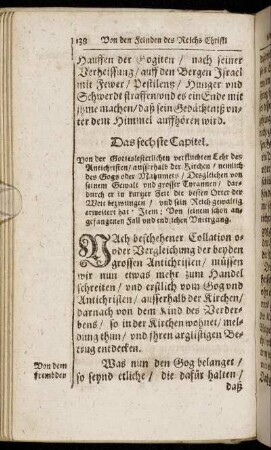 138 Von den Feinden des Reichs Christi
Hauffen der Gogiten / nach seiner
Verheissung / auff den Bergen Israel
mit Fewer / Pestilentz / Hunger vnd
Schwerdt straffen / vnd es ein Ende mit
jhme machen / daß sein Gedächtniß vn-
ter dem Himmel auffhören wird.
Das sechste Capitel.
Von der Gotteslesterlichen verfluchten Lehr des
Antichristen / ausserhalb der Kirchen / nemlich
des Gogs oder Mahumets / Desgleichen von
seinem Gewalt vnd grosser Tyranney / dar-
durch er in kurtzer Zeit die besten Orter der
Welt bezwungen / vnd sein Reich gewaltig
erweitert hat: Item: Von seinem schon an-
gefangenen Fall vnd endlichen Vntergang.
NAch beschehener Collation o-
der Vergleichung der beyden
grossen Antichristen / müssen
wir nun etwas mehr zum Handel
schreiten / vnd erstlich vom Gog vnd
Antichristen / ausserhalb der Kirchen /
darnach von dem Kind des Verder-
bens / so in der Kirchen wohnet / mel-
dung thun / vnd jhren arglistigen Be-
trug entdecken.
Von dem
frembden
Was nun den Gog belanget /
so seynd etliche / die dafür halten /
daß